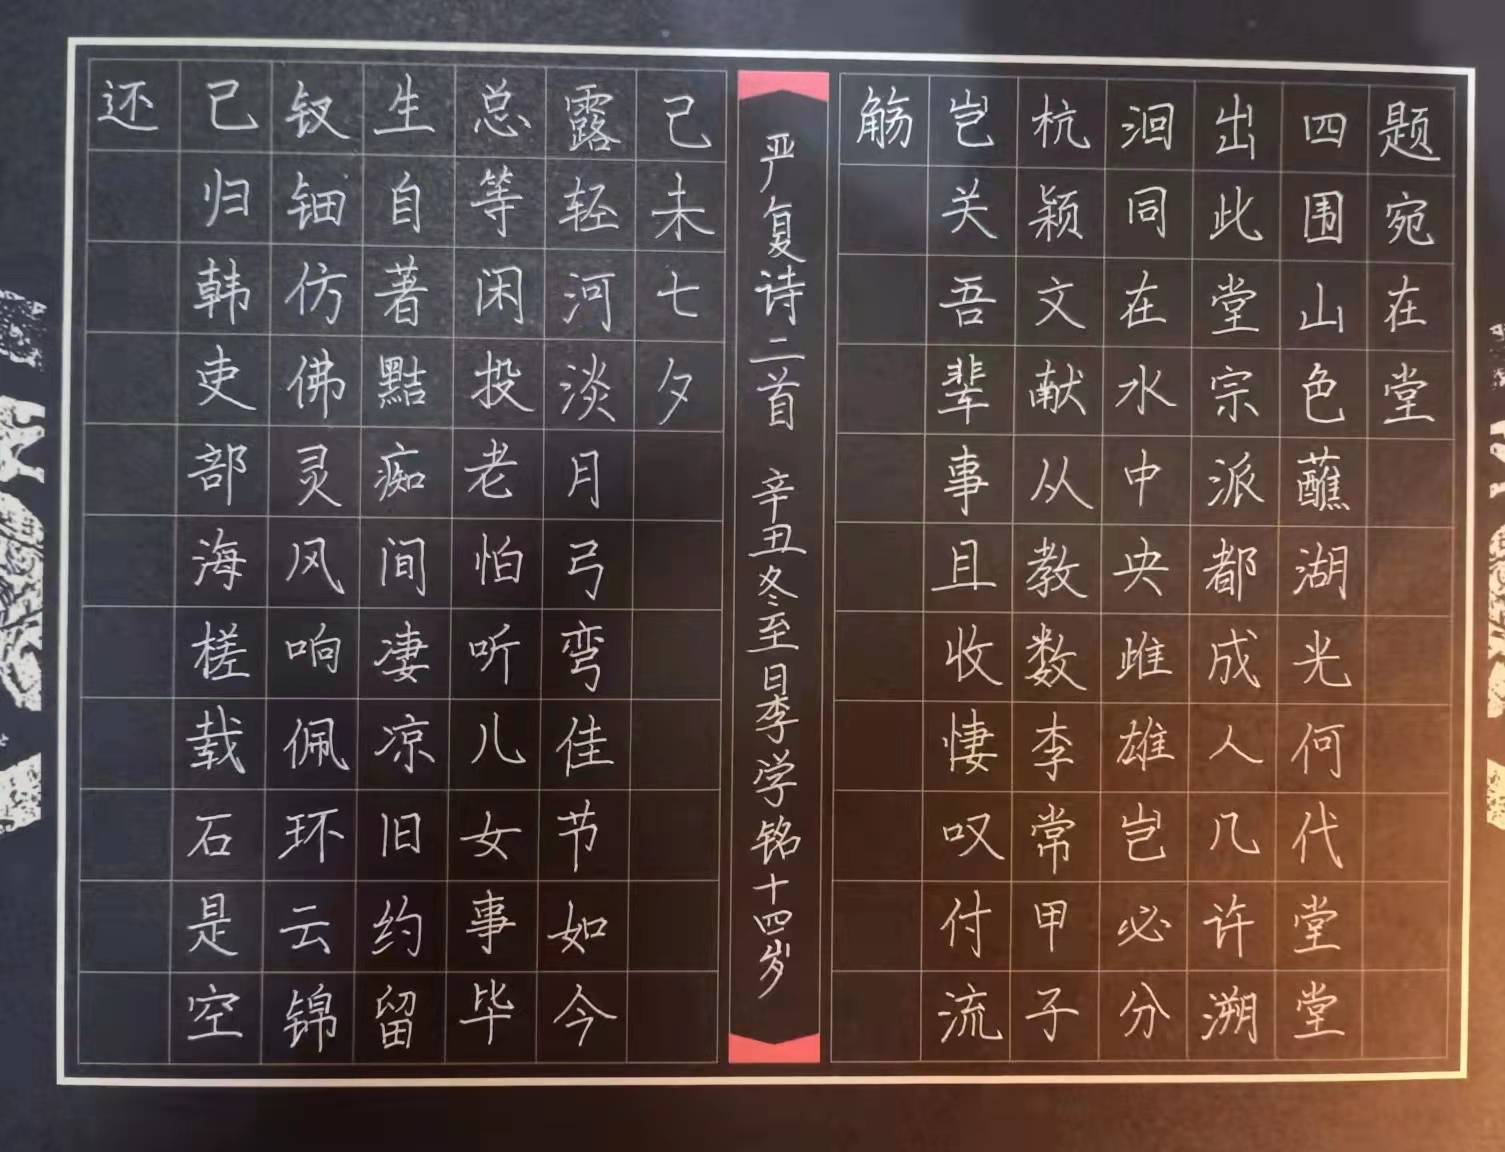 题宛在堂
四围山色蘸湖光何代堂堂
出此堂宗派都成人几许溯
洄同在水中央雌雄岂必分
杭颖文献从教数李常甲子
岂关吾辈事且收悽叹付流
觞
严复诗二首 辛丑冬至日李学铭十四岁
己未七夕
露轻河淡月弓弯佳节如今
总等闲投老怕听儿女事毕
生自著黠痴间凄凉旧约留
钗钿仿佛灵风响佩环云锦
已归韩吏部海槎载石是空
还